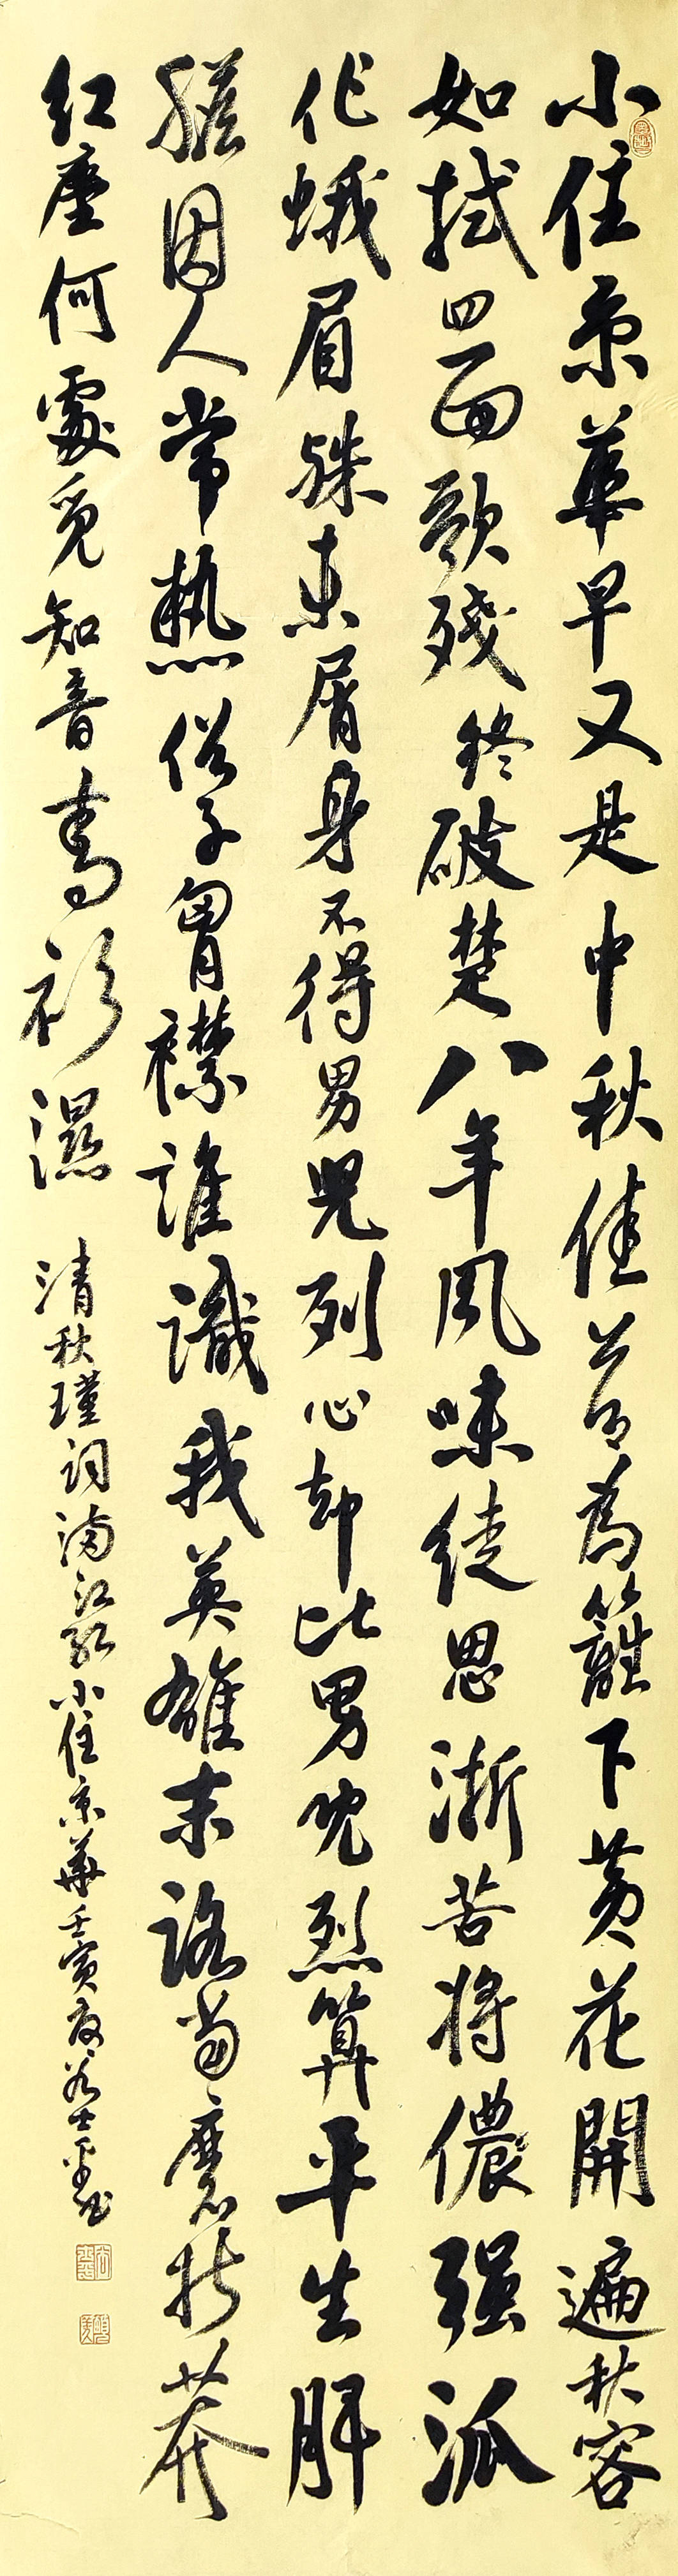 小住京華早又是中秋佳節為籬下黃花開遍秋容
如拭四面歌殘終破楚八年風味徒思浙苦將儂强派
作蛾眉殊未屑身不得男兒列心却比男兒烈算平生肝
膽因人常熱俗子胷襟誰識我英雄末路當磨折莽
紅塵何處覓知音青衫濕
清秋瑾詞滿江紅小住京華壬寅